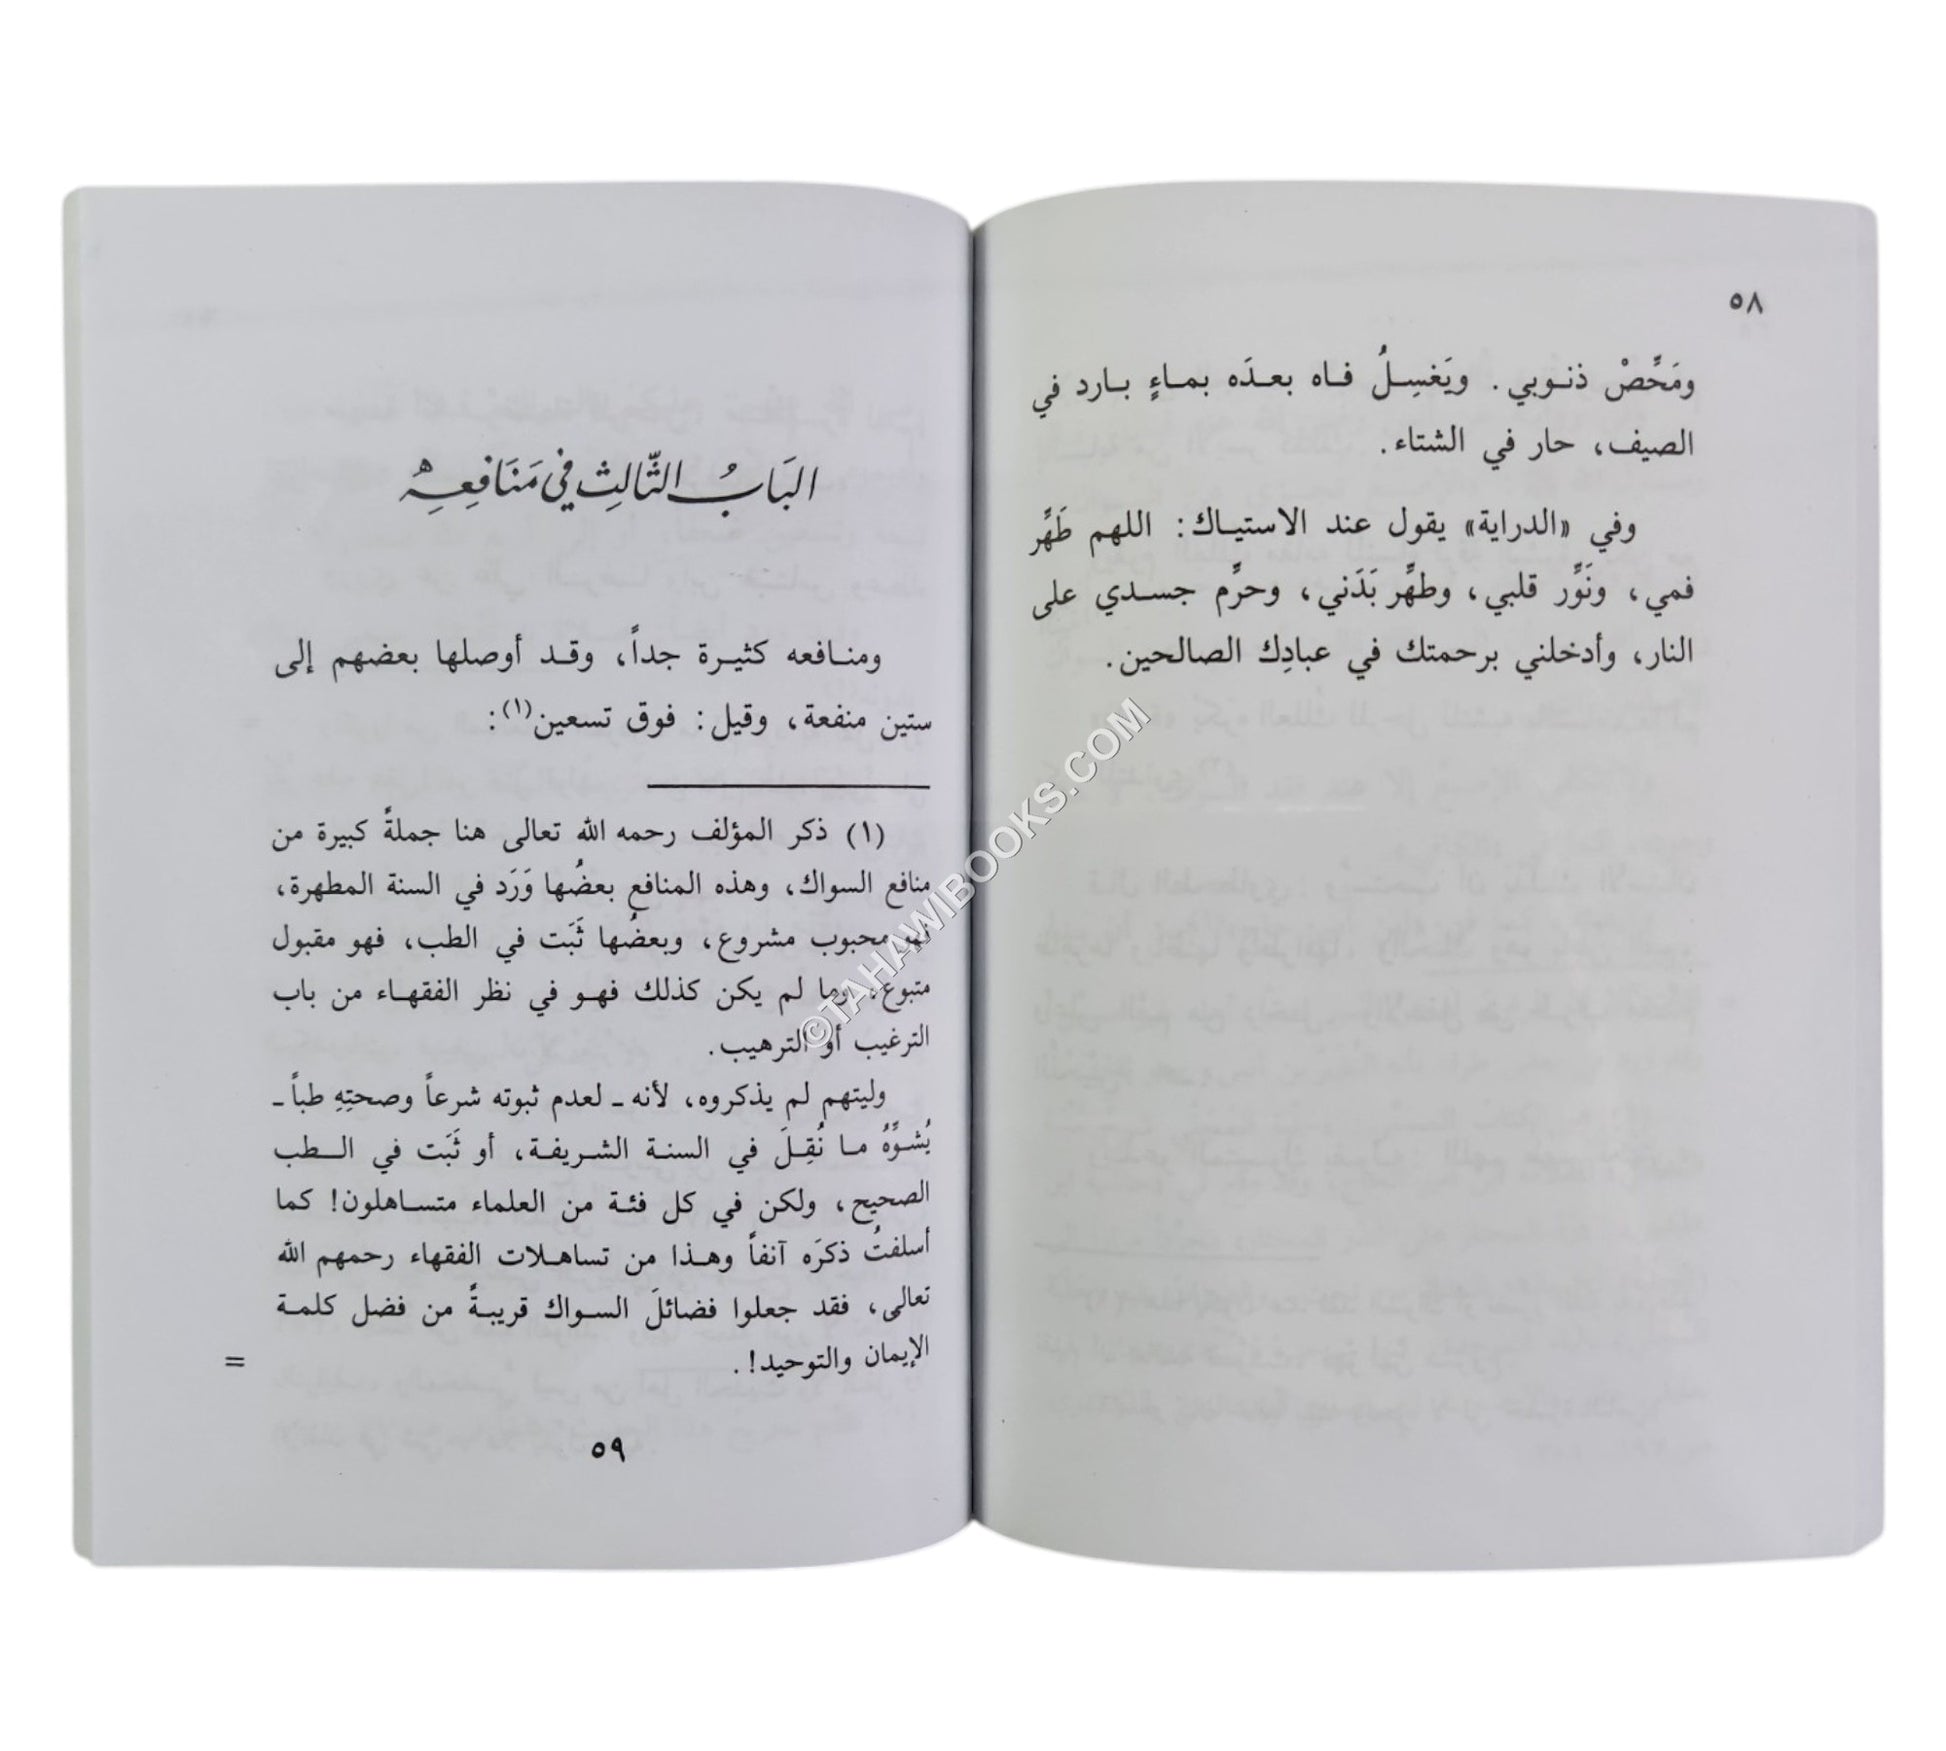 ٥٨
ومَحِّصْ ذنوبي. ويَغسِلُ فاه بعدَه بماءٍ بارد في
الصيف، حار في الشتاء.
وفي «الدراية» يقول عند الاستياك: اللهم طَهِّر
فمي، ونَوِّر قلبي، وطهِّر بَدَني، وحرِّم جسدي على
النار، وأدخلني برحمتك في عبادِك الصالحين.
البَابُ الثّالِثْ في مَنَافِعِهِ
ومنافعه كثيرة جداً، وقد أوصلها بعضهم إلى
ستين منفعة، وقيل: فوق تسعين(١):
(١) ذكر المؤلف رحمه الله تعالى هنا جملةً كبيرة من
منافع السواك، وهذه المنافع بعضُها وَرَد في السنة المطهرة،
فهو محبوب مشروع، وبعضُها ثَبَت في الطب، فهو مقبول
متبوع، وما لم يكن كذلك فهو في نظر الفقهاء من باب
الترغيب أو الترهيب.
وليتهم لم يذكروه، لأنه ـ لعدم ثبوته شرعاً وصحتِهِ طباً ـ
يُشوِّهُ ما نُقِلَ في السنة الشريفة، أو ثَبَت في الطب
الصحيح، ولكن في كل فئة من العلماء متساهلون! كما
أسلفتُ ذكرَه آنفاً وهذا من تساهلات الفقهاء رحمهم الله
تعالى، فقد جعلوا فضائلَ السواك قريبةً من فضل كلمة
الإيمان والتوحيد!. =
٥٩
©TAHAWIBOOKS.COM